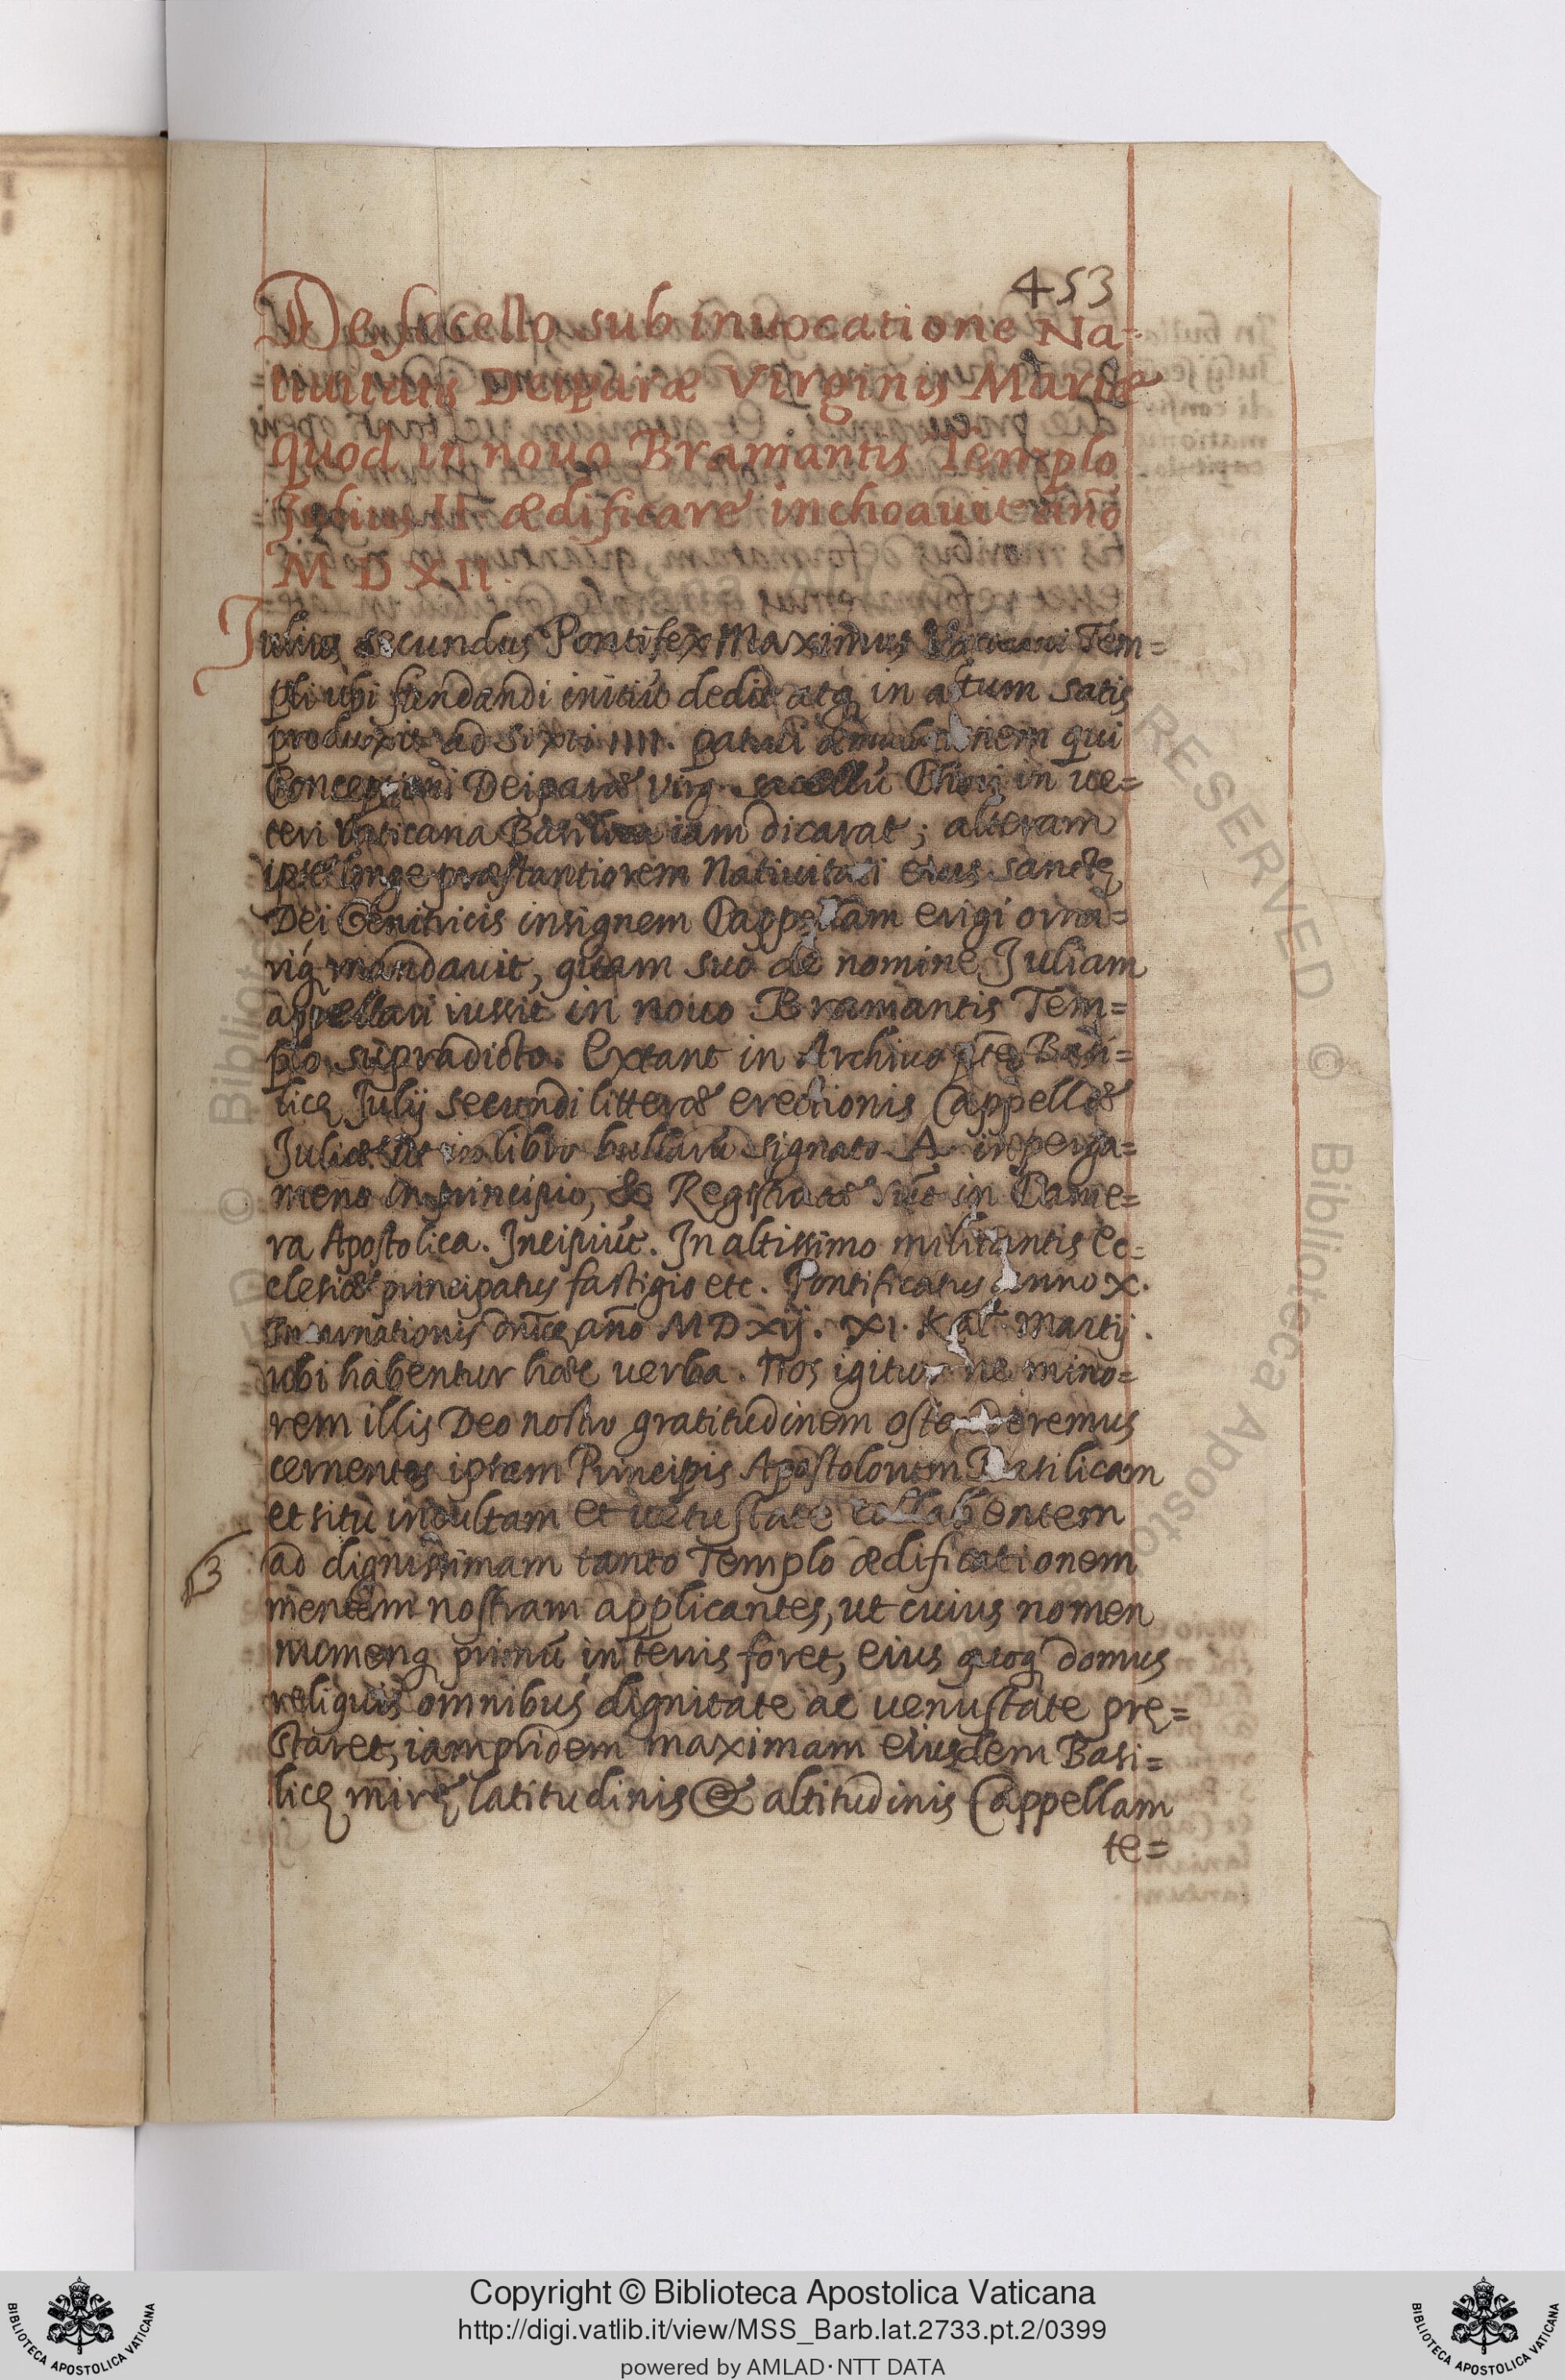 453
De sacello sub inuocatione Na=
tiuitatis Deiparæ Virginis Mariæ
quod in nouo Bramantis Templo
Iulius II ædificare inchoauit año
M D XII.
Iulius secundus Pontifex Maximus Vaticani Tem=
pli ubi fundandi initiũ dedit atq in altum satis
produxit ad Sixti IIII. patrui æmulationem qui
Conceptioni Deiparæ Virg. sacellũ Chori in ue=
teri Vaticana Basilica iam dicarat; alteram
ipse longe præstantiorem Natiuitati eius sanctę
Dei Genitricis insignem Cappellam erigi orna=
riq mandauit, quam suo de nomine Juliam
appellari iussit in nouo Bramantis Tem=
plo supradicto. Extant in Archiuo Basi=
licę Julij secundi litteræ erectionis Cappellæ
Juliæ in libro bullarũ signato A in perga=
meno in principio, & in Came=
ra Apostolica. Incipiũt. In altissimo militantis Ec=
clesiæ principatus fastigio etc. Pontificatus anno X.
Incarnationis dnicę año MDxij. XI. Kal. Martij.
ubi habentur hæc uerba. Nos igitur ne mino=
rem illis Deo nostro gratitudinem ostenderemus
cernentes ipsam Principis Apostolorum Basilicam
et situ incultam et uetustate collabentem
ad dignissimam tanto Templo ædificationem
mentem nostram applicantes, ut cuius nomen
numenq primũ in terris foret, eius quoq domus
reliquis omnibus dignitate ac uenustate prę=
staret, iampridem maximam eiusdem Basi=
licę mirę latitudinis & altitudinis Cappellam
te=
Copyright © Biblioteca Apostolica Vaticana
http://digi.vatlib.it/view/MSS_Barb.lat.2733.pt.2/0399
powered by AMLAD·NTT DATA
BIBLIOTECA APOSTOLICA VATICANA
BIBLIOTECA APOSTOLICA VATICANA